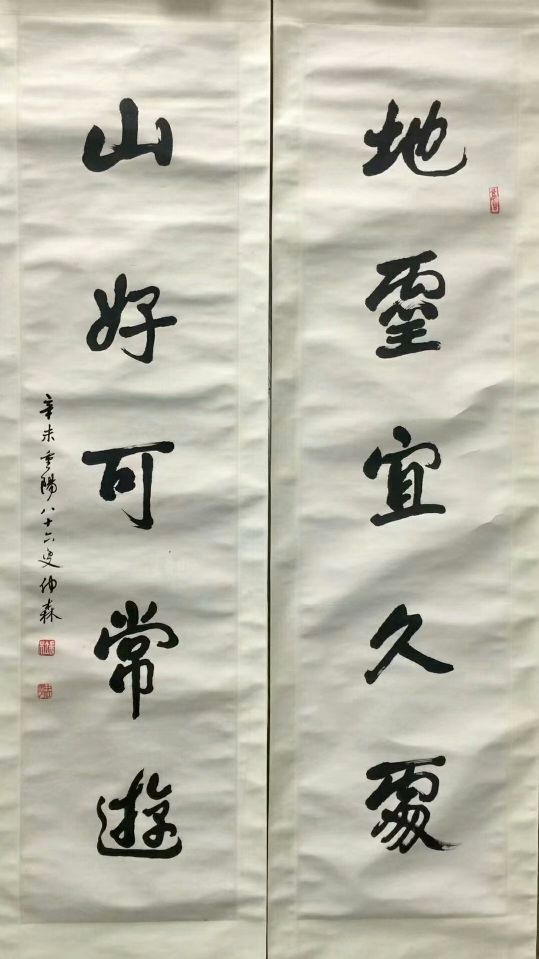 地靈宜久處
山好可常遊
辛未重陽八十六叟仲森